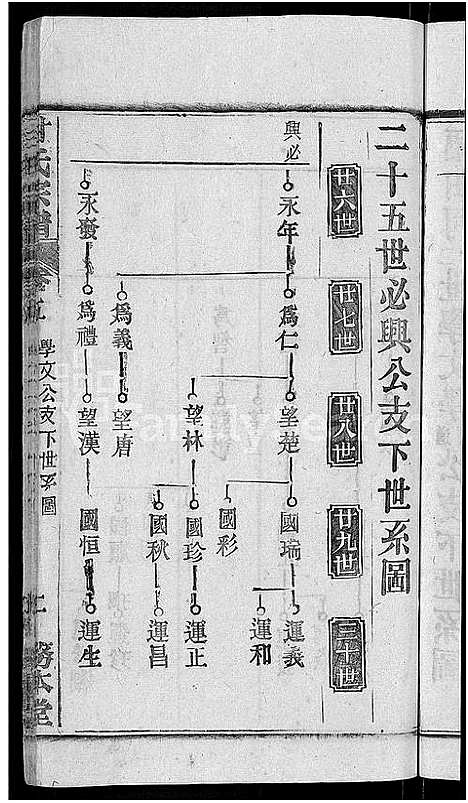 二十五世必興公支下世系圖
廿六世
廿七世
廿八世
廿九世
三十世
興必
永年
爲仁
望楚
國瑞
運義
運和
國彩
望林
國珍
運正
國秋
運昌
爲義
望唐
永發
爲禮
望漢
國恒
運生
氏宗譜
學文公支下世系圖
務本堂